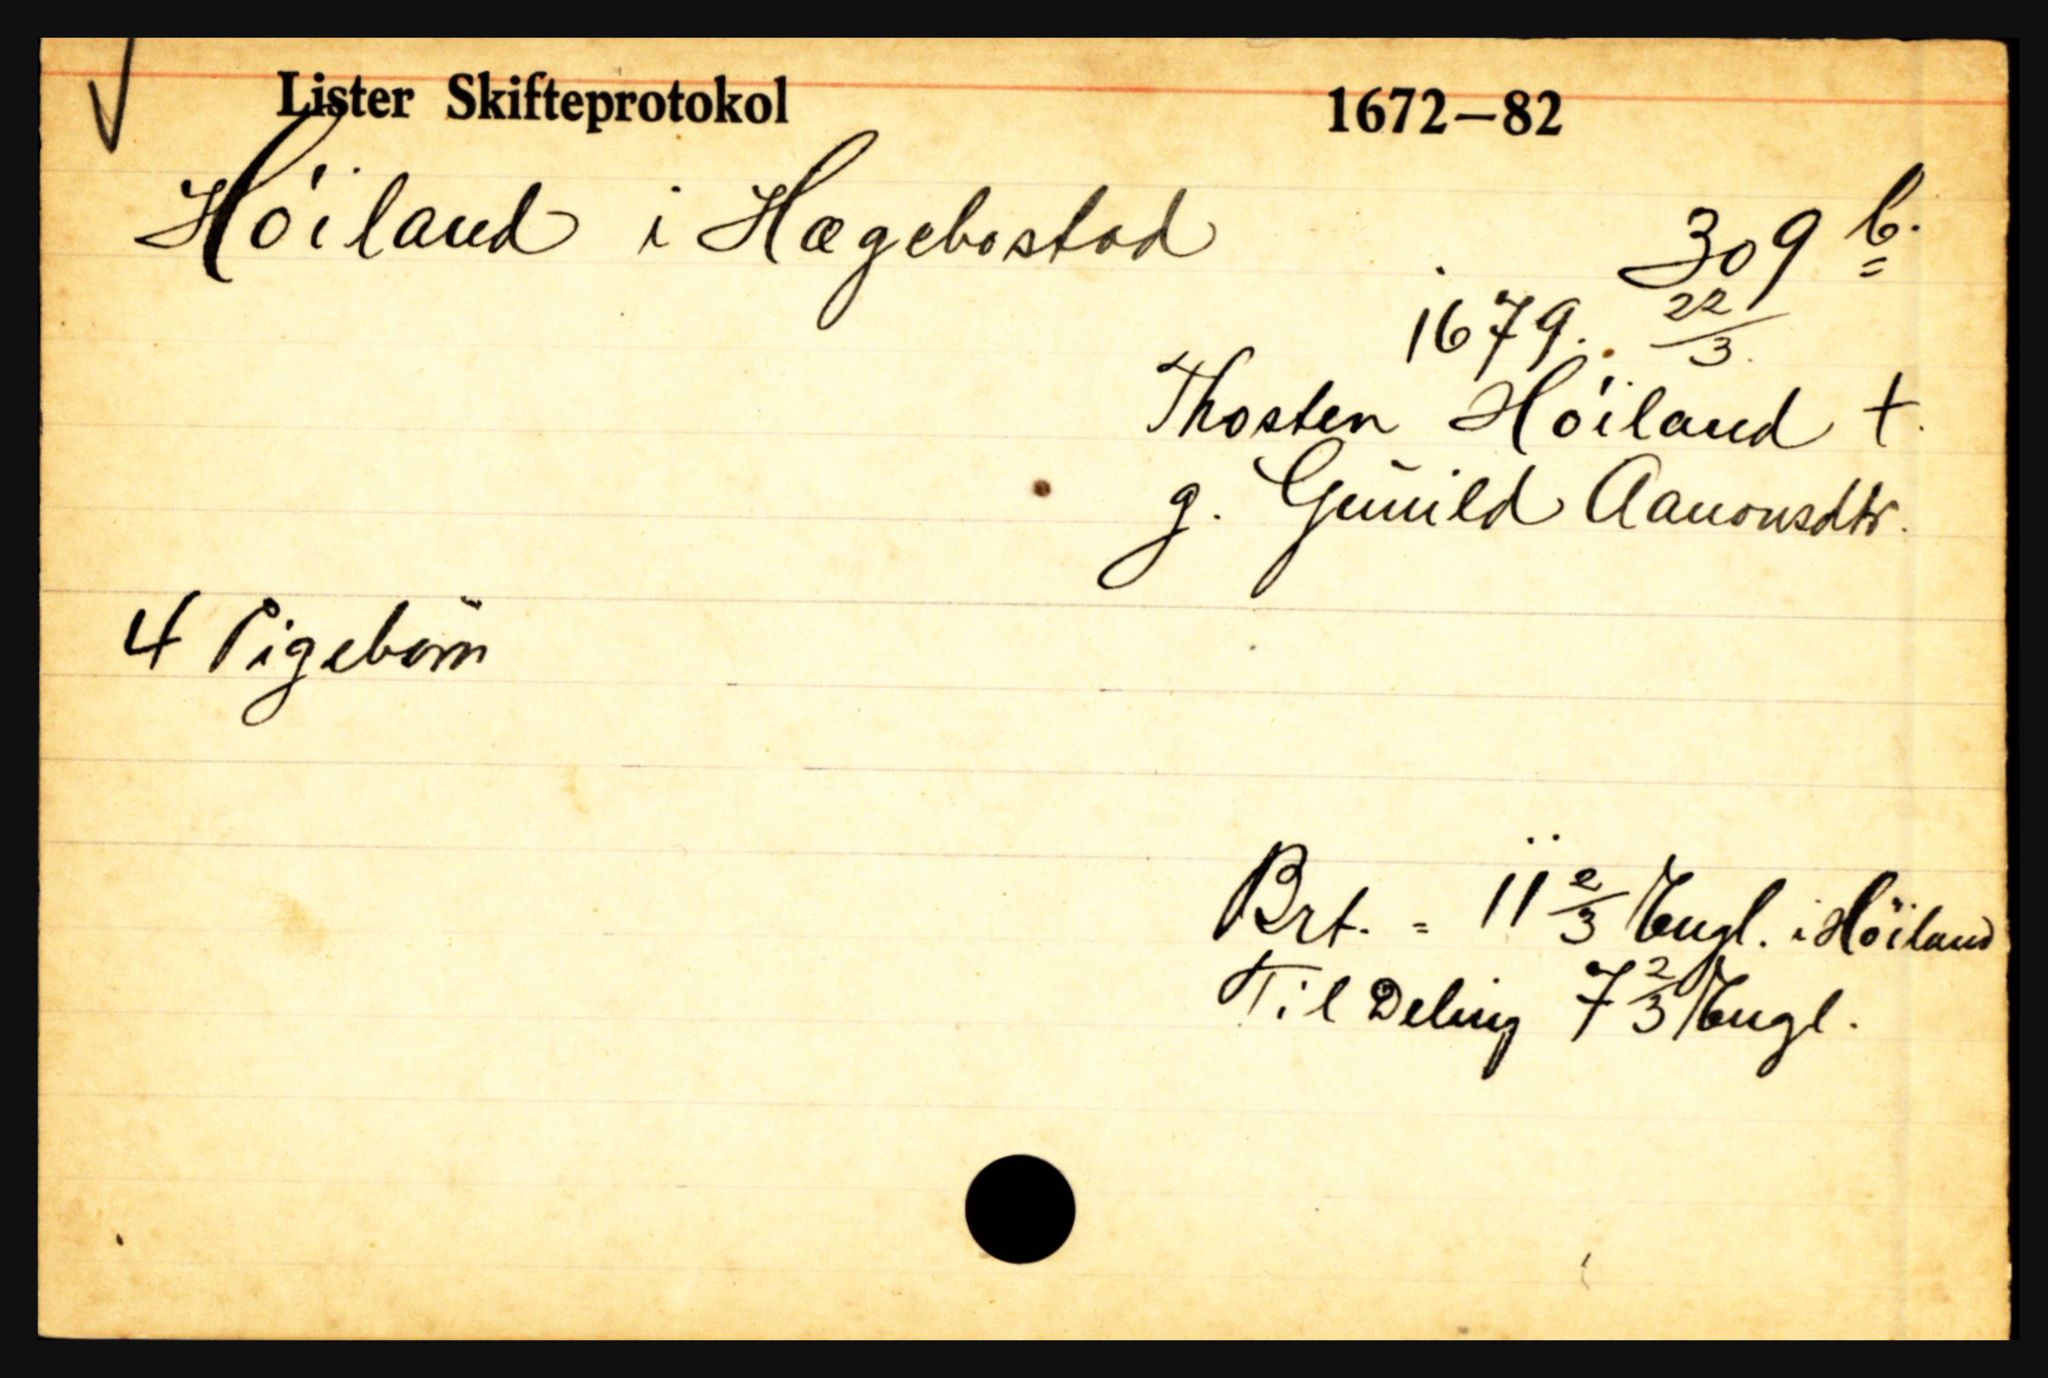 Lister Skifteprotokol 1672–82
Höiland i Hægebostad 309 b.
1679. 22/3.
Thosten Höiland †.
g. Gunild Aanonsdtr.
4 Pigebørn
Brt. = 11 2/3 Engl. i Höiland
Til Deling 7 2/3 Engl.